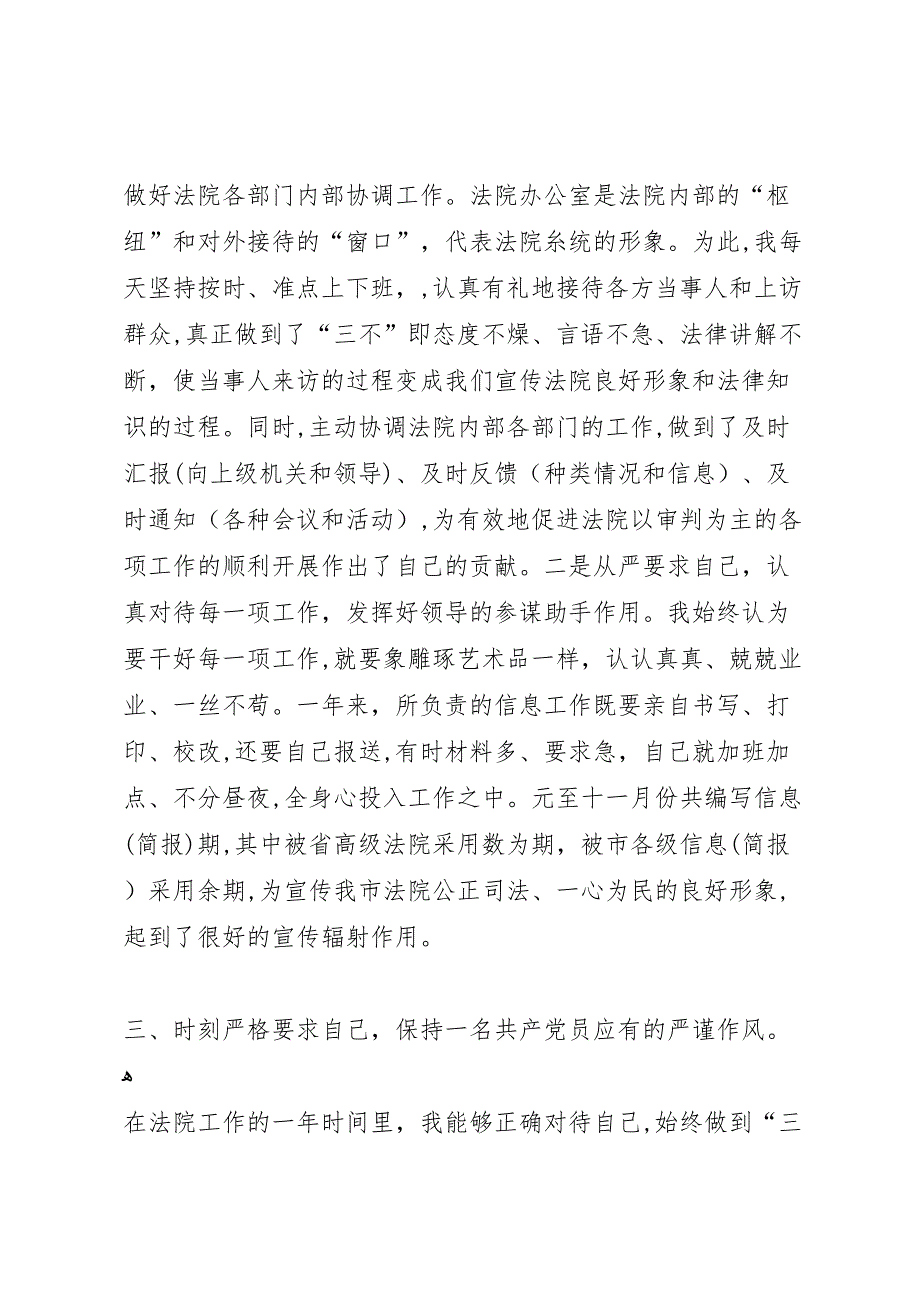 做好法院各部门内部协调工作。法院办公室是法院内部的“枢
纽”和对外接待的“窗口”，代表法院糸统的形象。为此,我每
天坚持按时、准点上下班，,认真有礼地接待各方当事人和上访
群众,真正做到了“三不”即态度不燥、言语不急、法律讲解不
断，使当事人来访的过程变成我们宣传法院良好形象和法律知
识的过程。同时,主动协调法院内部各部门的工作,做到了及时
汇报(向上级机关和领导)、及时反馈（种类情况和信息）、及
时通知（各种会议和活动）,为有效地促进法院以审判为主的各
项工作的顺利开展作出了自己的贡献。二是从严要求自己，认
真对待每一项工作，发挥好领导的参谋助手作用。我始终认为
要干好每一项工作,就要象雕琢艺术品一样，认认真真、兢兢业
业、一丝不苟。一年来，所负责的信息工作既要亲自书写、打
印、校改,还要自己报送,有时材料多、要求急，自己就加班加
点、不分昼夜,全身心投入工作之中。元至十一月份共编写信息
(简报)期,其中被省高级法院采用数为期，被市各级信息(简报
）采用余期,为宣传我市法院公正司法、一心为民的良好形象,
起到了很好的宣传辐射作用。
三、时刻严格要求自己，保持一名共产党员应有的严谨作风。
ﻫ
在法院工作的一年时间里，我能够正确对待自己,始终做到“三